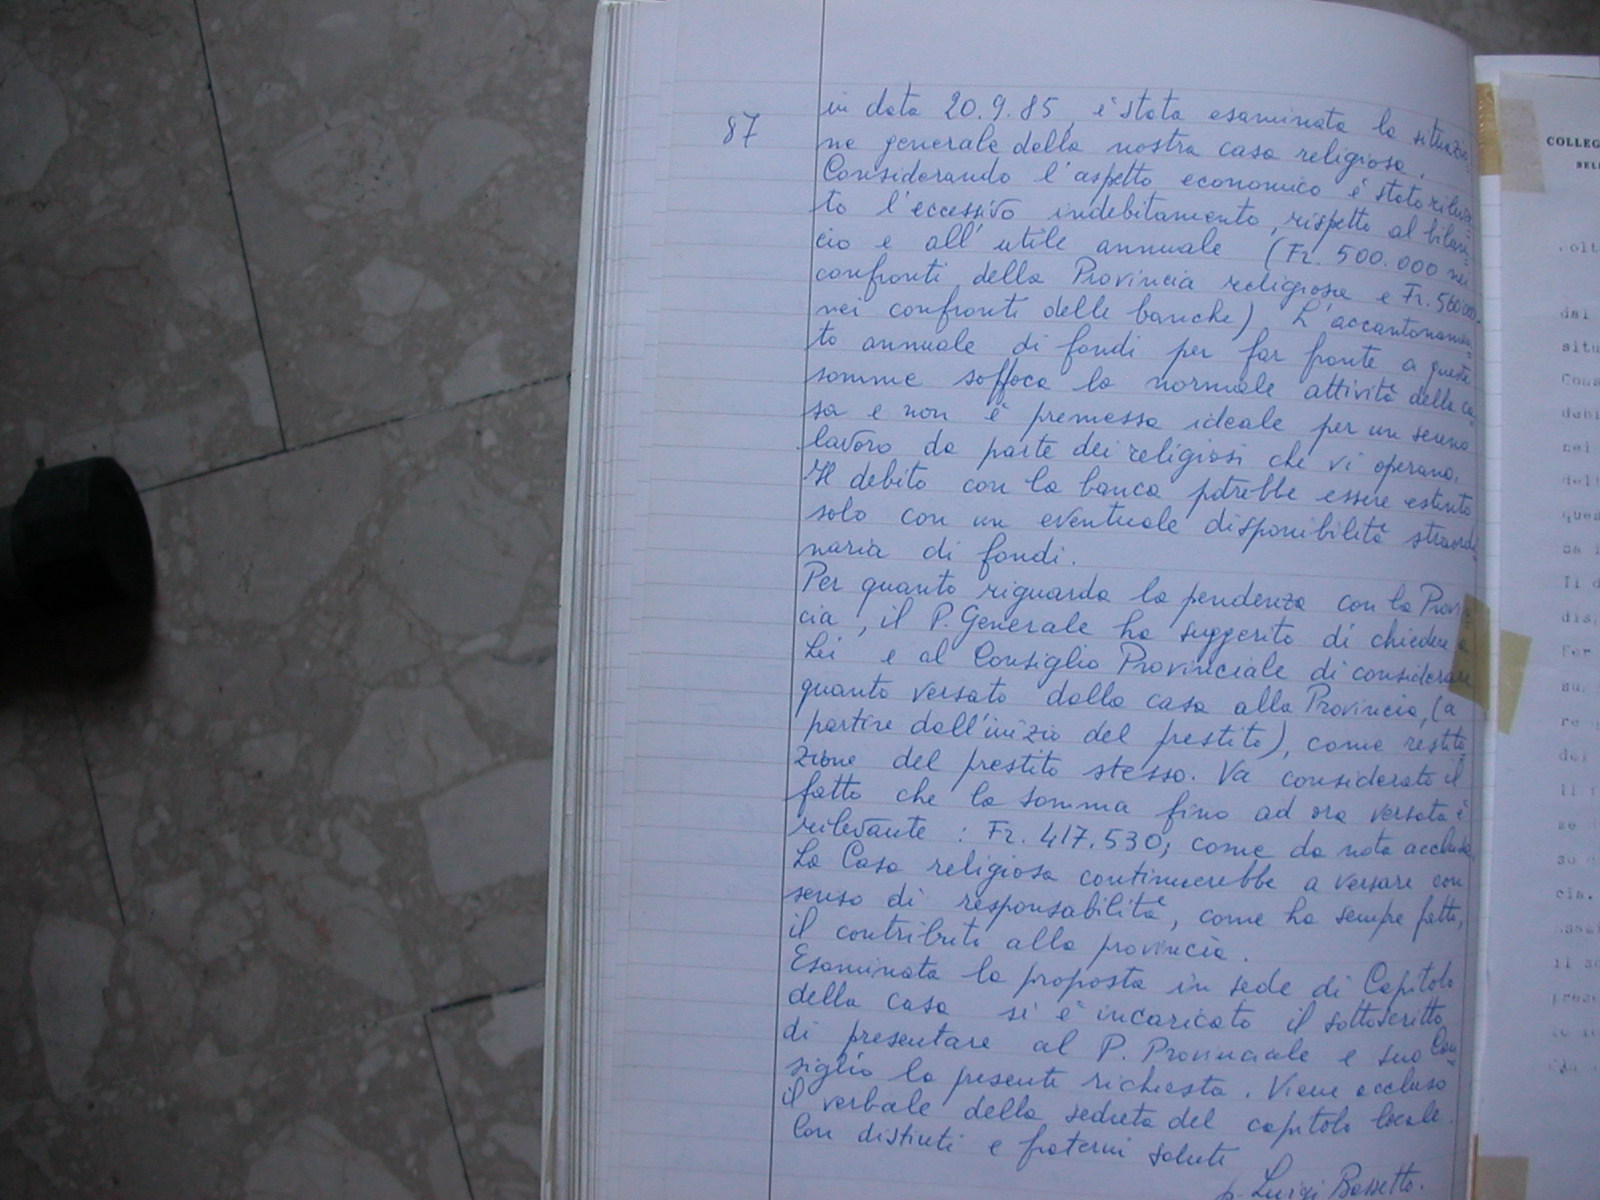 87
in data 20.9.85, è stata esaminata la situazio=
ne generale della nostra casa religiosa.
Considerando l'aspetto economico è stato rileva=
to l'eccessivo indebitamento, rispetto al bilan=
cio e all'utile annuale (Fr. 500.000 nei
confronti della Provincia religiosa e Fr. 560.000
nei confronti delle banche) L'accantonamen=
to annuale di fondi per far fronte a queste
somme soffoca la normale attività della ca=
sa e non è premessa ideale per un sereno
lavoro da parte dei religiosi che vi operano.
Il debito con la banca potrebbe essere estinto
solo con un eventuale disponibilità straordi=
naria di fondi.
Per quanto riguarda la pendenza con la Provin=
cia, il P. Generale ha suggerito di chiedere a
Lei e al Consiglio Provinciale di considerare
quanto versato dalla casa alla Provincia, (a
partire dall'inizio del prestito), come restitu
zione del prestito stesso. Va considerato il
fatto che la somma fino ad ora versata è
rilevante : Fr. 417.530; come da nota acclusa.
La Casa religiosa continuerebbe a versare con
senso di responsabilità, come ha sempre fatto,
il contributi alla provincia.
Esaminata la proposta in sede di Capitolo
della casa si è incaricato il sottoscritto
di presentare al P. Provinciale e suo Con=
siglio la presente richiesta. Viene accluso
il verbale della seduta del capitolo locale.
Con distinti e fraterni saluti
p. Luigi Bassetto.
COLLEG
situ